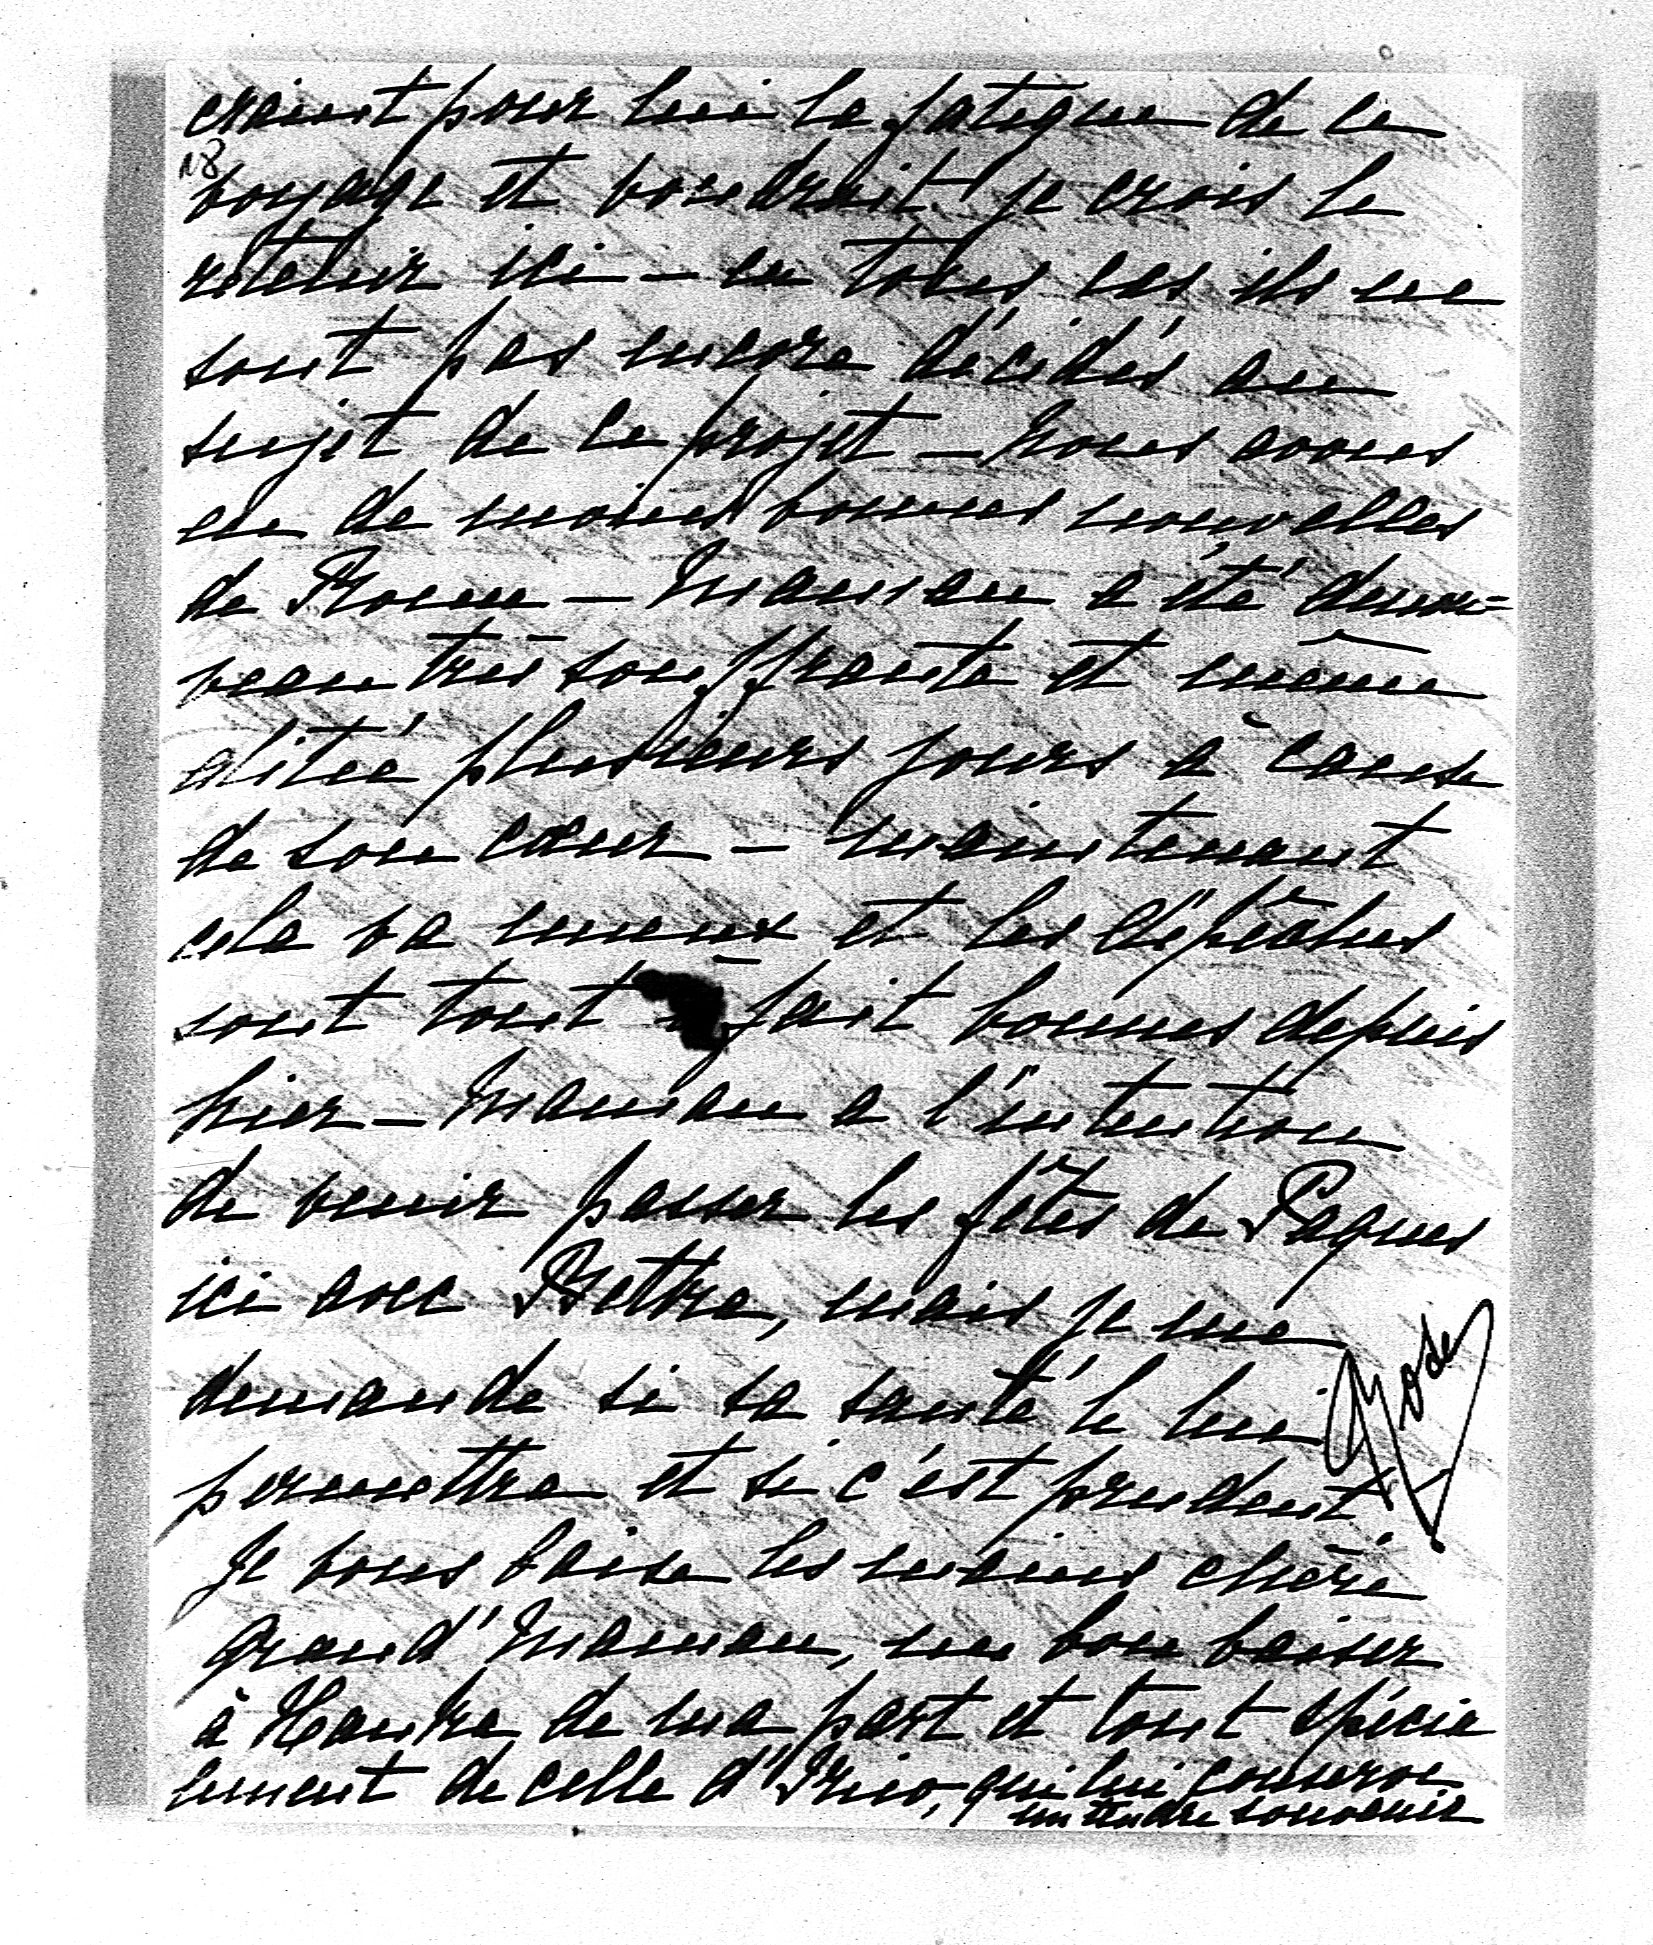 craint pour lui la fatigue de ce
18
voyage et voudrait je crois le
retenir ici — en tous cas ils ne
sont pas encore décidés au
sujet de ce projet — Nous avons
eu de moins bonnes nouvelles
de Rome — Maman a été denou=
veau très souffrante et même
alitée plusieurs jours à cause
de son cœur — maintenant
cela va mieux et les dépêches
sont tout à fait bonnes depuis
hier — Maman a l'intention
de venir passer les fêtes de Paques
ici avec Bettra, mais je me
demande si sa santé le lui
permettra et si c'est prudent.
Je vous baise les mains chère
Grand'Maman, un bon baiser
à de ma part et tout spécia
lement de celle d' qui lui conserve
un tendre souvenir